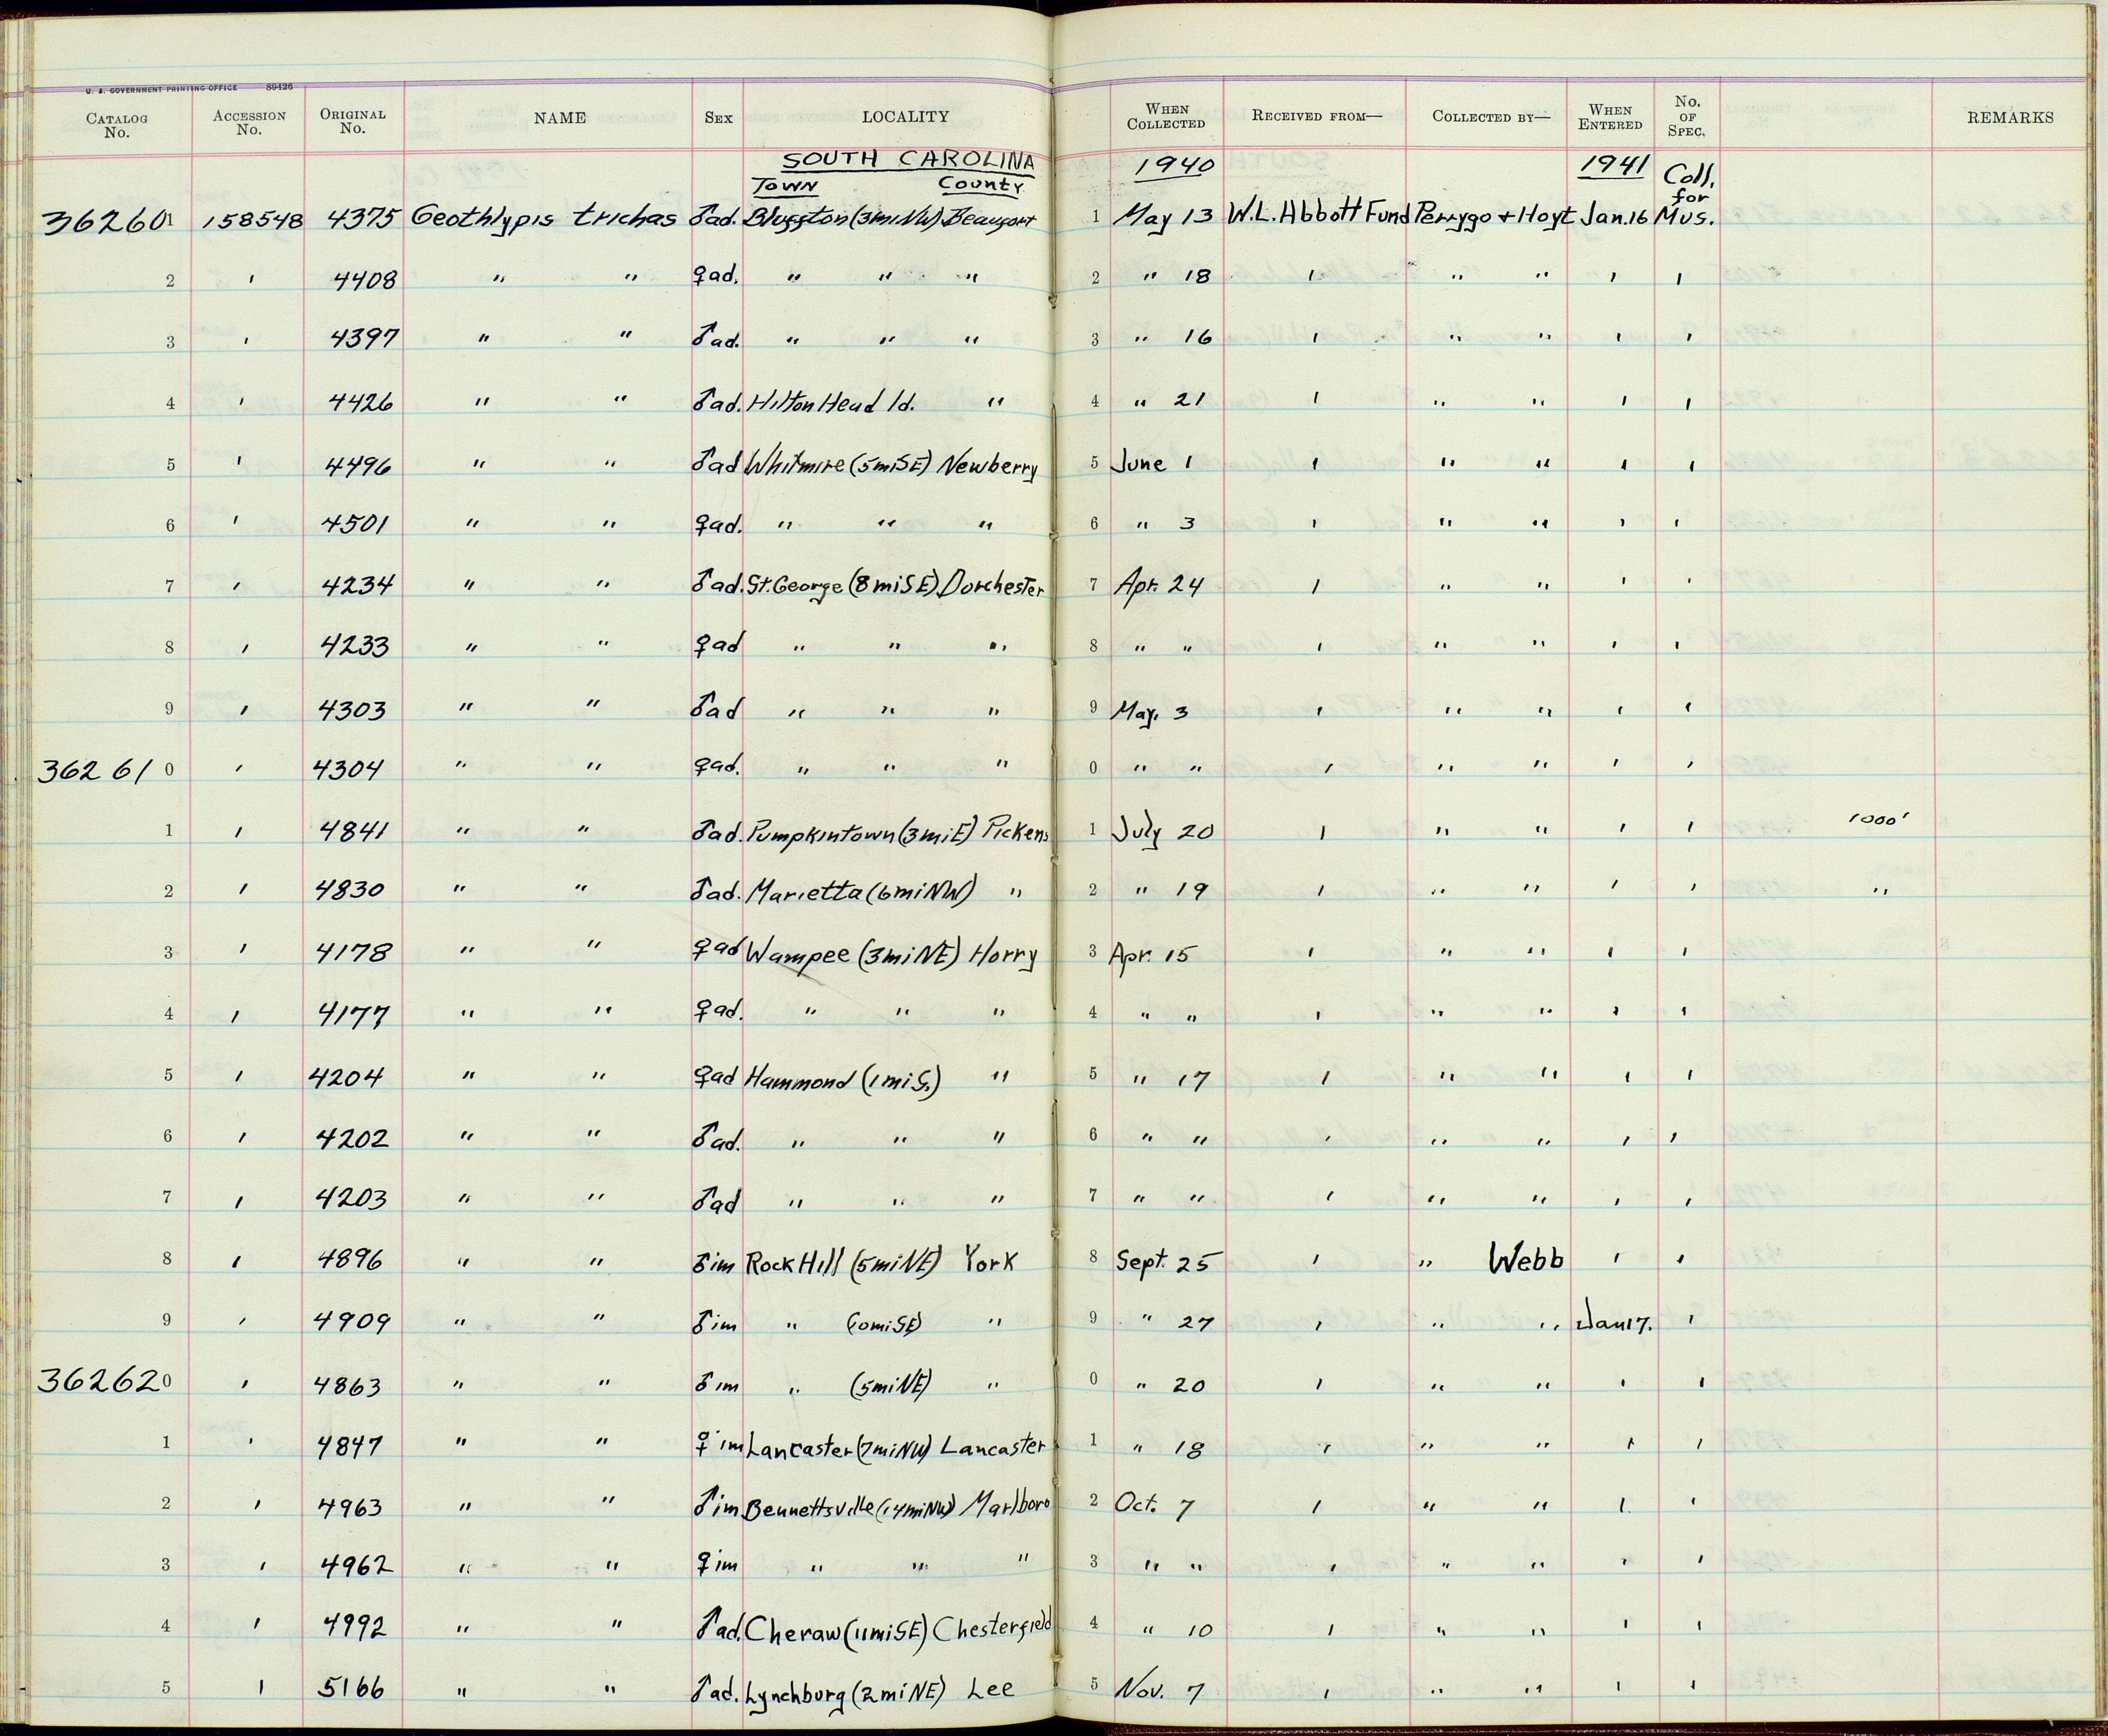 U. S. GOVERNMENT PRINTING OFFICE 89426
CATALOG No. ACCESSION No. ORIGINAL No. NAME SEX LOCALITY WHEN COLLECTED RECEIVED FROM— COLLECTED BY— WHEN ENTERED No. OF SPEC. REMARKS
SOUTH CAROLINA 1940 1941 Coll.
Town County for
362601 158548 4375 Geothlypis trichas ♂ad. Bluffton (3miNW) Beaufort 1 May 13 W.L. Abbott Fund Perrygo + Hoyt Jan. 16 Mus.
2 ' 4408 " " ♀ad. " " " 2 " 18 ' " " ' '
3 ' 4397 " " ♂ad. " " " 3 " 16 ' " " ' '
4 ' 4426 " " ♂ad. Hilton Head Id. " 4 " 21 ' " " ' '
5 ' 4496 " " ♂ad Whitmire (5miSE) Newberry 5 June 1 ' " " ' '
6 ' 4501 " " ♀ad. " " " 6 " 3 ' " " ' '
7 ' 4234 " " ♂ad. St. George (8miSE) Dorchester 7 Apr. 24 ' " " ' '
8 ' 4233 " " ♀ad " " " 8 " " ' " " ' '
9 ' 4303 " " ♂ad " " " 9 May. 3 ' " " ' '
362610 ' 4304 " " ♀ad. " " " 0 " " ' " " ' '
1 ' 4841 " " ♂ad. Pumpkintown (3miE) Pickens 1 July 20 ' " " ' ' 1000'
2 ' 4830 " " ♂ad. Marietta (6miNW) " 2 " 19 ' " " ' ' "
3 ' 4178 " " ♀ad Wampee (3miNE) Horry 3 Apr. 15 ' " " ' '
4 ' 4177 " " ♀ad. " " " 4 " " ' " " ' '
5 ' 4204 " " ♀ad Hammond (1miS.) " 5 " 17 ' " " ' '
6 ' 4202 " " ♂ad. " " " 6 " " ' " " ' '
7 ' 4203 " " ♂ad " " " 7 " " ' " " ' '
8 ' 4896 " " ♂im Rock Hill (5miNE) York 8 Sept. 25 ' " Webb ' '
9 ' 4909 " " ♂im " (10miSE) " 9 " 27 ' " " Jan 17. '
362620 ' 4863 " " ♂im " (5miNE) " 0 " 20 ' " " ' '
1 ' 4847 " " ♀im Lancaster (7miNW) Lancaster 1 " 18 ' " " ' '
2 ' 4963 " " ♂im Bennettsville (14miNW) Marlboro 2 Oct. 7 ' " " ' '
3 ' 4962 " " ♀im " " " 3 " " ' " " ' '
4 ' 4992 " " ♂ad. Cheraw (11miSE) Chesterfield 4 " 10 ' " " ' '
5 ' 5166 " " ♂ad. Lynchburg (2miNE) Lee 5 Nov. 7 ' " " ' '